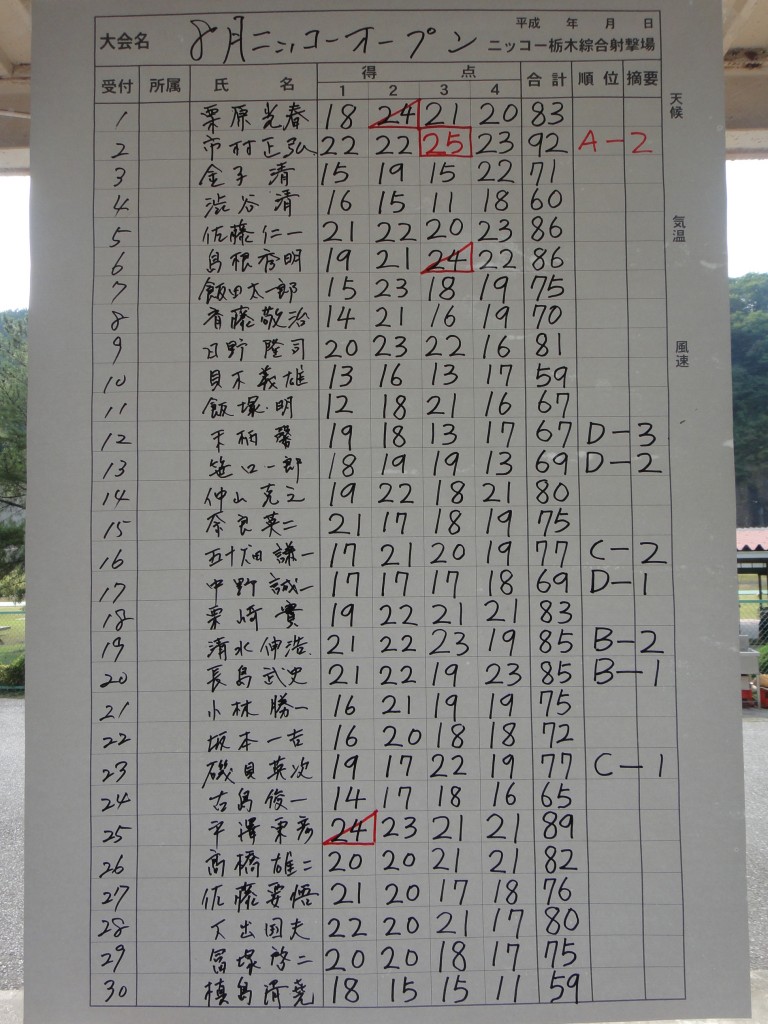 平成 年 月 日
大会名 8月ニッコーオープン ニッコー栃木綜合射撃場
受付 所属 氏 名 得 点 合計 順位 摘要
1 2 3 4
天候
気温
風速
1 栗原光春 18 24 21 20 83
2 市村正弘 22 22 25 23 92 A-2
3 金子清 15 19 15 22 71
4 渋谷清 16 15 11 18 60
5 佐藤仁一 21 22 20 23 86
6 島根秀明 19 21 24 22 86
7 飯田太一郎 15 23 18 19 75
8 斉藤敬治 14 21 16 19 70
9 日野隆司 20 23 22 16 81
10 貝不義雄 13 16 13 17 59
11 飯塚明 12 18 21 16 67
12 柄馨 19 18 13 17 67 D-3
13 笹口一郎 18 19 19 13 69 D-2
14 仲山克之 19 22 18 21 80
15 奈良英二 21 17 18 19 75
16 五十畑謙一 17 21 20 19 77 C-2
17 中野誠一 17 17 17 18 69 D-1
18 栗崎實 19 22 21 21 83
19 清水伸浩 21 22 23 19 85 B-2
20 長島武史 21 22 19 23 85 B-1
21 小林勝一 16 21 19 19 75
22 坂本一吉 16 20 18 18 72
23 磯貝英次 19 17 22 19 77 C-1
24 古島俊一 14 17 18 16 65
25 平澤東彦 24 23 21 21 89
26 高橋雄二 20 20 21 21 82
27 佐藤要悟 21 20 17 18 76
28 大出国夫 22 20 21 17 80
29 冨塚啓二 20 20 18 17 75
30 槙島清堯 18 15 15 11 59